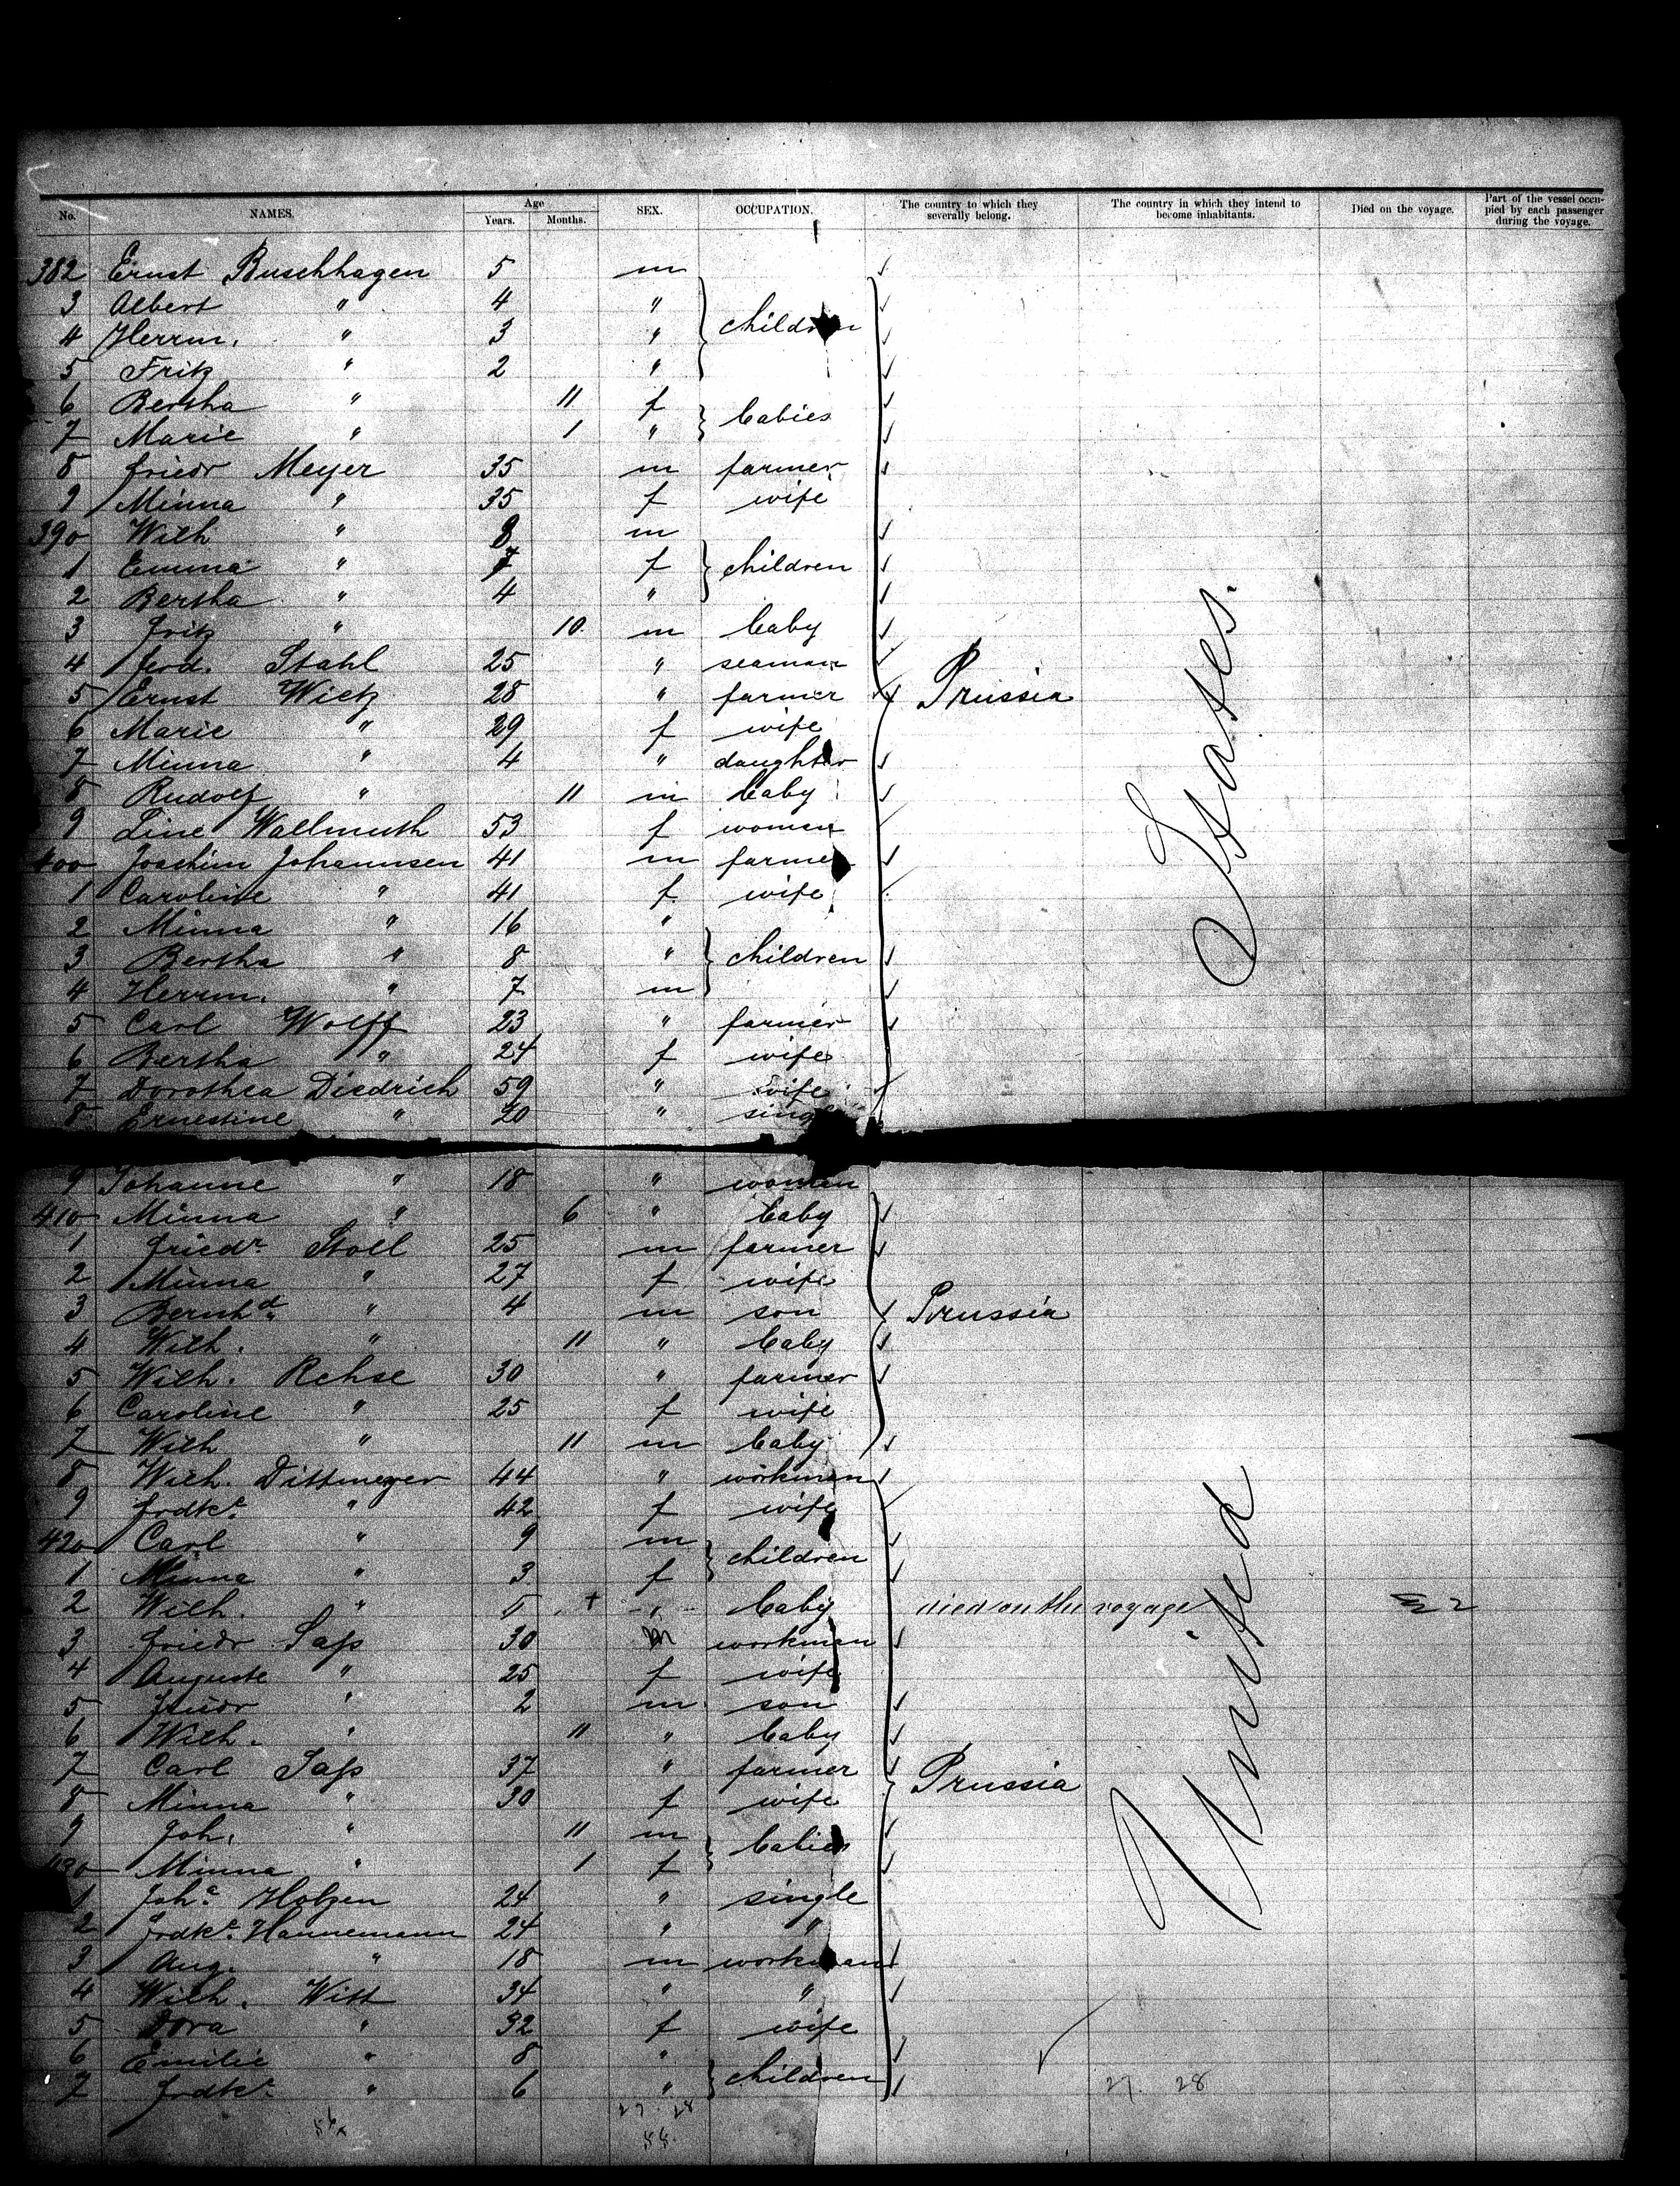 No. NAMES. Age Years. Months. SEX. OCCUPATION. The country to which they severally belong. The country in which they intend to become inhabitants. Died on the voyage. Part of the vessel occupied by each passenger during the voyage.
382 Ernst Buschhagen 5 m
3 Albert " 4 "
4 Herrm. " 3 " children
5 Fritz " 2 "
6 Bertha " 11 f
7 Marie " 1 " babies
8 Friedr Meyer 35 m farmer
9 Minna " 35 f wife
390 Wilh " 8 m
1 Emma " 7 f children
2 Bertha " 4 "
3 Fritz " 10 m baby
4 Ferd. Stahl 25 " seaman
5 Ernst Wietz 28 " farmer Prussia
6 Marie " 29 f wife
7 Minna " 4 " daughter
8 Rudolf " 11 m baby
9 Line Wallmuth 53 f women
400 Joachim Johannsen 41 m farmer
1 Caroline " 41 f wife
2 Minna " 16 "
3 Bertha " 8 " children
4 Herrm. " 7 m
5 Carl Wolff 23 " farmer
6 Bertha " 24 f wife
7 Dorothea Diedrich 59 " wife
8 Ernestine " 20 " single
9 Johanne " 18 " women
410 Minna " 6 " baby
1 Friedr. Stoll 25 m farmer
2 Minna " 27 f wife
3 Bernhd. " 4 m son Prussia
4 Wilh. " 11 " baby
5 Wilh. Rehse 30 " farmer
6 Caroline " 25 f wife
7 Wilh " 11 m baby
8 Wilh. Dittmeyer 44 " workman
9 Frdke. " 42 f wife
420 Carl " 9 m
1 Minna " 3 f children
2 Wilh. " + " baby died on the voyage
3 Friedr Saß 30 m workman
4 Auguste " 25 f wife
5 Friedr " 2 m son
6 Wilh. " 11 " baby
7 Carl Saß 37 " farmer Prussia
8 Minna " 30 f wife
9 Joh. " 11 m
430 Minna " 1 f babies
1 Johe. Holzen 24 " single
2 Frdke. Hannemann 24 " "
3 Aug. " 18 m workman
4 Wilh. Witt 34 " "
5 Dora " 32 f wife
6 Emilie " 8 "
7 Frdke. " 6 " children
United States.
27. 28
27. 28